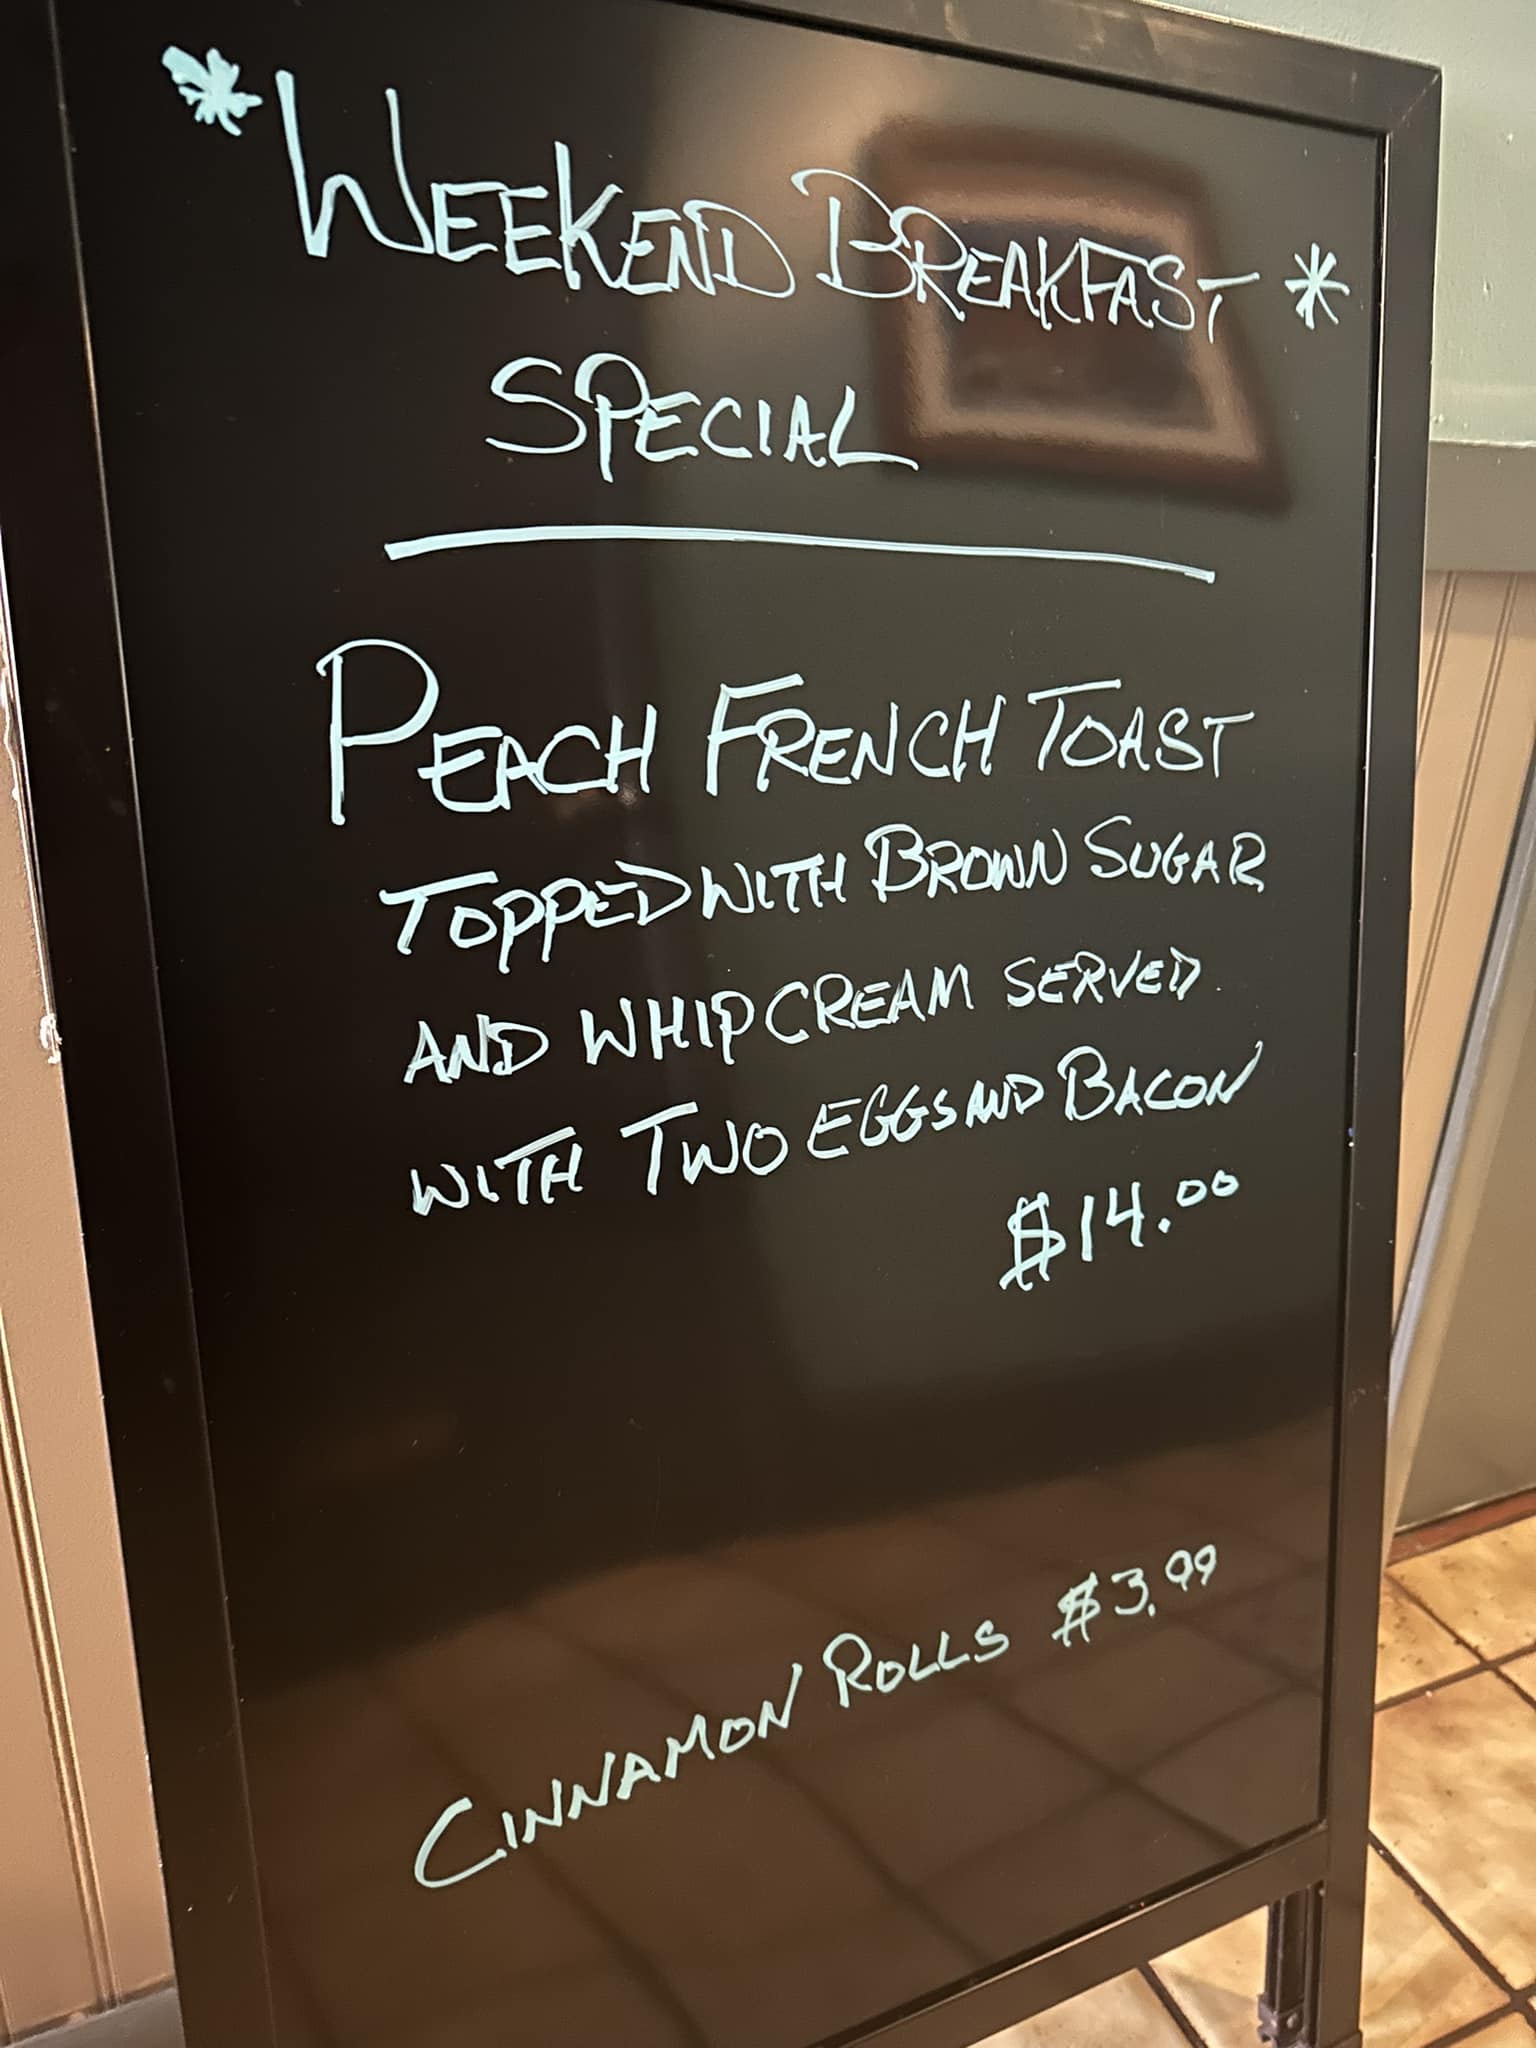 *WEEKEND BREAKFAST*
SPECIAL
PEACH FRENCH TOAST
TOPPED WITH BROWN SUGAR
AND WHIPCREAM SERVED
WITH TWO EGGS AND BACON
$14.00
CINNAMON ROLLS $3.99